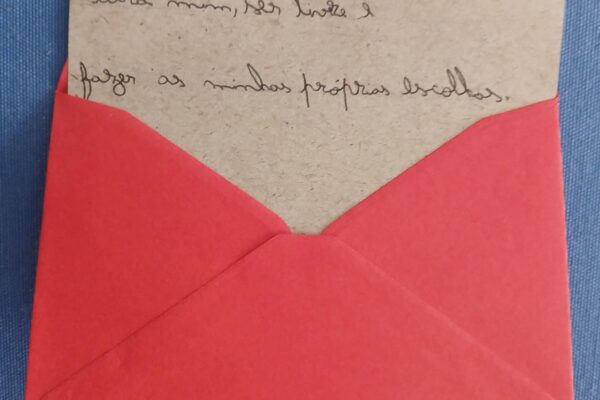 para mim, ser livre é
fazer as minhas próprias escolhas.